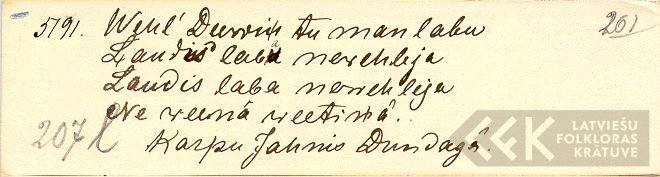 5791. Wehl' Deewin tu man labu 201
Laudis laba newehleja
Laudis laba newehleja
Ne weenâ weetinâ.
207
Karpu Jahnis Dundagâ.
LFK LATVIEŠU
FOLKLORAS
KRĀTUVE